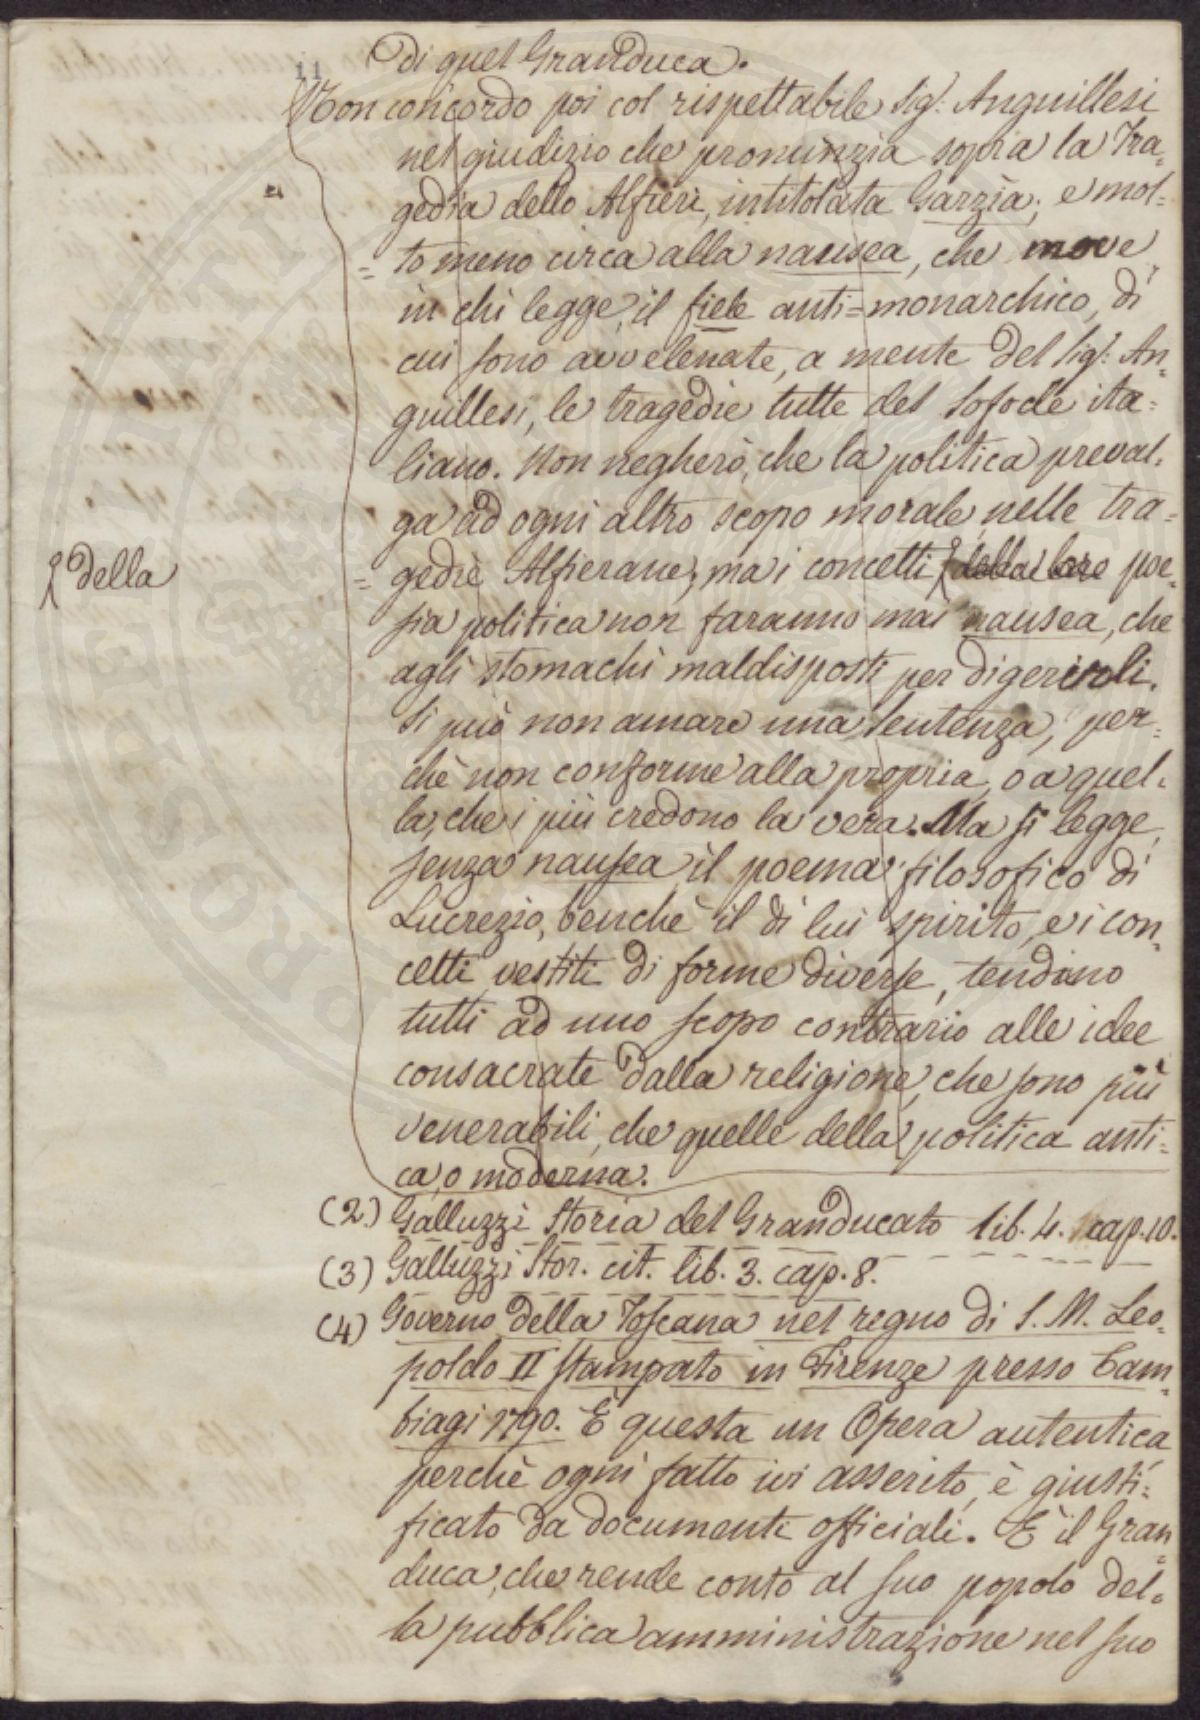 11
di quel Granduca.
Non concordo poi col rispettabile Sig.r Anguillesi
nel giudizio che pronunzia sopra la Tra=
gedia dello Alfieri, intitolata Garzìa; e mol=
to meno circa alla nausea, che move
in chi legge, il fiele anti=monarchico, di
cui sono avvelenate, a mente del Sig.r An=
guillesi, le tragedie tutte del Sofocle ita=
liano. Non negherò, che la politica preval=
ga ad ogni altro scopo morale, nelle tra=
della
gedie Alfierane; ma i concetti della loro poe=
sia politica non faranno mai nausea, che
agli stomachi maldisposti per digerirli.
Si può non amare una sentenza, per=
chè non conforme alla propria, o a quel=
la, che i più credono la vera. Ma si legge,
senza nausea il poema filosofico di
Lucrezio, benchè il di lui spirito, e i con=
cetti vestiti di forme diverse, tendano
tutti ad uno scopo contrario alle idee
consacrate dalla religione, che sono più
venerabili, che quelle della politica anti=
ca, o moderna.
(2.) Galluzzi Storia del Granducato lib. 4. cap. 10.
(3) Galluzzi Stor. cit. lib. 3. cap. 8.
(4) Governo della Toscana nel regno di S. M. Leo=
poldo II stampato in Firenze presso Cam=
biagi 1790. È questa un Opera autentica
perchè ogni fatto ivi asserito, è giusti=
ficato da documenti officiali. È il Gran=
duca, che rende conto al suo popolo del=
la pubblica amministrazione nel suo